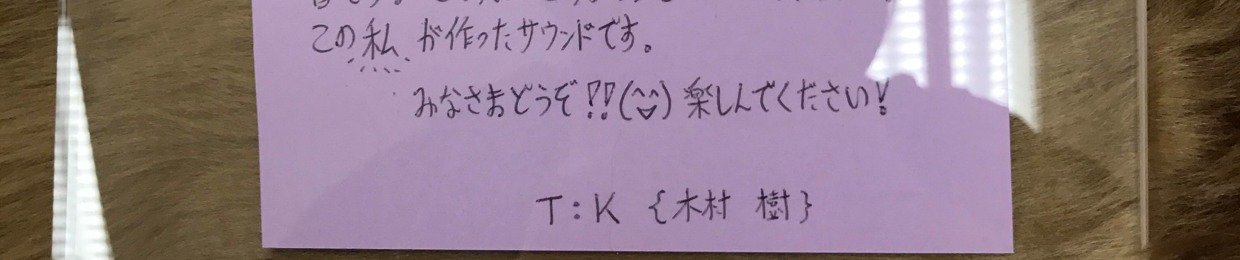 この私が作ったサウンドです。
みなさまどうぞ!!(^▽^)楽しんでください!
T:K {木村 樹}